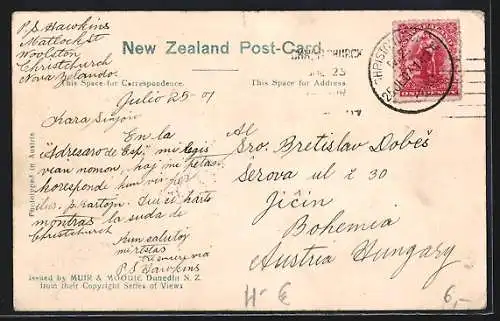 P S Hawkins
Matlock St
Woolston
Christchurch
Nova Zelando.
New Zealand Post-Card
This Space for Correspondence.
This Space for Address
CHRISTCHURCH
25
Julio 25 - 07
Kara Sinjoro
En la
"Adresaro de Esp," mi legis
vian nomon, kaj mi petas
korespondi kun vi per
ilus. p. kartoj. Tiu ĉi karto
montras la suda de
Christchurch
Kun salutoj
mi restas
P S Hawkins
Al
Sro. Bretislav Dobeš
Šerova ul č 30
Jičín
Bohemia
Austria Hungary
Phototyped in Austria
Issued by MUIR & MOODIE, Dunedin N. Z.
from their Copyright Series of Views
H - E
6,-